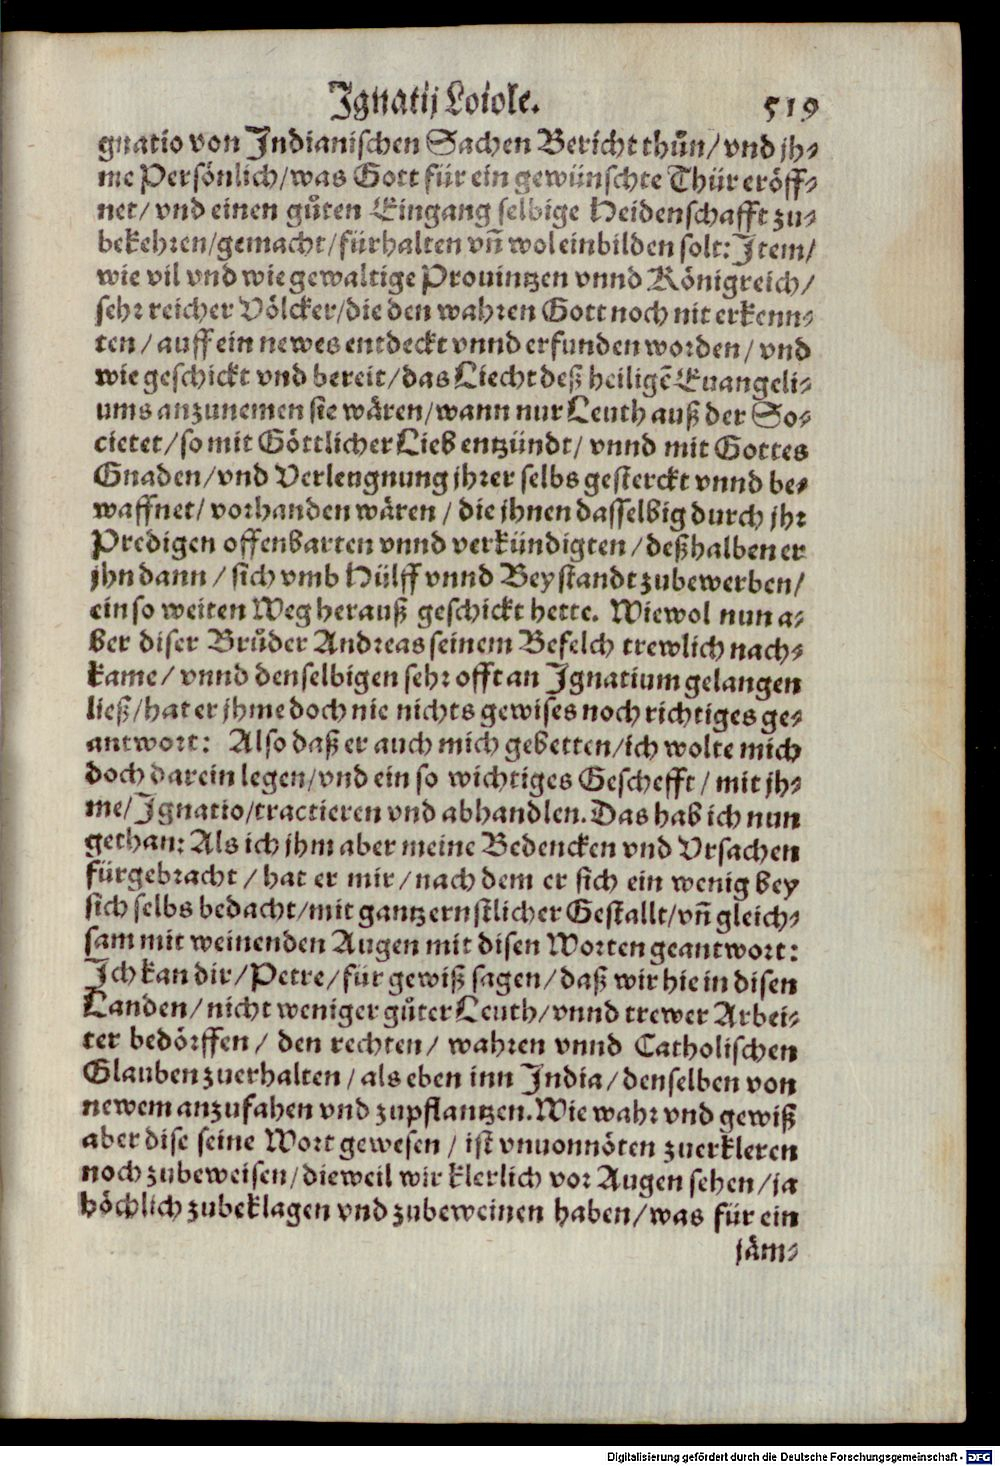 Ignatij Loiole. 519
gnatio von Indianischen Sachen Bericht thůn/ vnd jh-
me Persönlich/ was Gott für ein gewünschte Thür eröff-
net/ vnd einen gůten Eingang selbige Heidenschafft zu-
bekehren/ gemacht/ fürhalten vñ wol einbilden solt: Item/
wie vil vnd wie gewaltige Prouintzen vnnd Königreich/
sehr reicher Völcker/ die den wahren Gott noch nit erkenn-
ten/ auff ein newes entdeckt vnnd erfunden worden/ vnd
wie geschickt vnd bereit/ das Liecht deß heiligẽ Euangeli-
ums anzunemen sie wären/ wann nur Leuth auß der So-
cietet/ so mit Göttlicher Lieb entzündt/ vnnd mit Gottes
Gnaden/ vnd Verlengnung jhrer selbs gesterckt vnnd be-
waffnet/ vorhanden wären/ die jhnen dasselbig durch jhr
Predigen offenbarten vnnd verkündigten/ deßhalben er
jhn dann/ sich vmb Hülff vnnd Beystandt zubewerben/
ein so weiten Weg herauß geschickt hette. Wiewol nun a-
ber diser Brůder Andreas seinem Befelch trewlich nach-
kame/ vnnd denselbigen sehr offt an Ignatium gelangen
ließ/ hat er jhme doch nie nichts gewises noch richtiges ge-
antwort: Also daß er auch mich gebetten/ ich wolte mich
doch darein legen/ vnd ein so wichtiges Geschefft/ mit jh-
me/ Ignatio/ tractieren vnd abhandlen. Das hab ich nun
gethan: Als ich jhm aber meine Bedencken vnd Vrsachen
fürgebracht/ hat er mir/ nach dem er sich ein wenig bey
sich selbs bedacht/ mit gantz ernstlicher Gestallt/ vñ gleich-
sam mit weinenden Augen mit disen Worten geantwort:
Ich kan dir/ Petre/ für gewiß sagen/ daß wir hie in disen
Landen/ nicht weniger gůter Leuth/ vnnd trewer Arbei-
ter bedörffen/ den rechten/ wahren vnnd Catholischen
Glauben zuerhalten/ als eben inn India/ denselben von
newem anzufahen vnd zupflantzen. Wie wahr vnd gewiß
aber dise seine Wort gewesen/ ist vnuonnöten zuerkleren
noch zubeweisen/ dieweil wir klerlich vor Augen sehen/ ja
höchlich zubeklagen vnd zubeweinen haben/ was für ein
jäm-
Digitalisierung gefördert durch die Deutsche Forschungsgemeinschaft - DFG